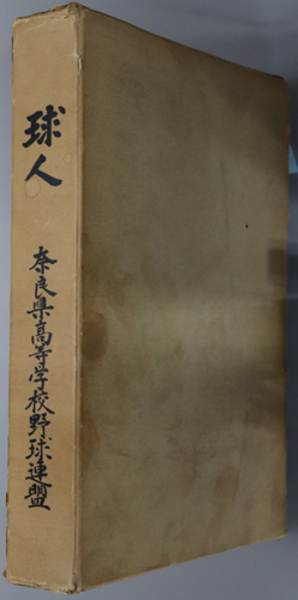 球人
奈良県高等学校野球連盟